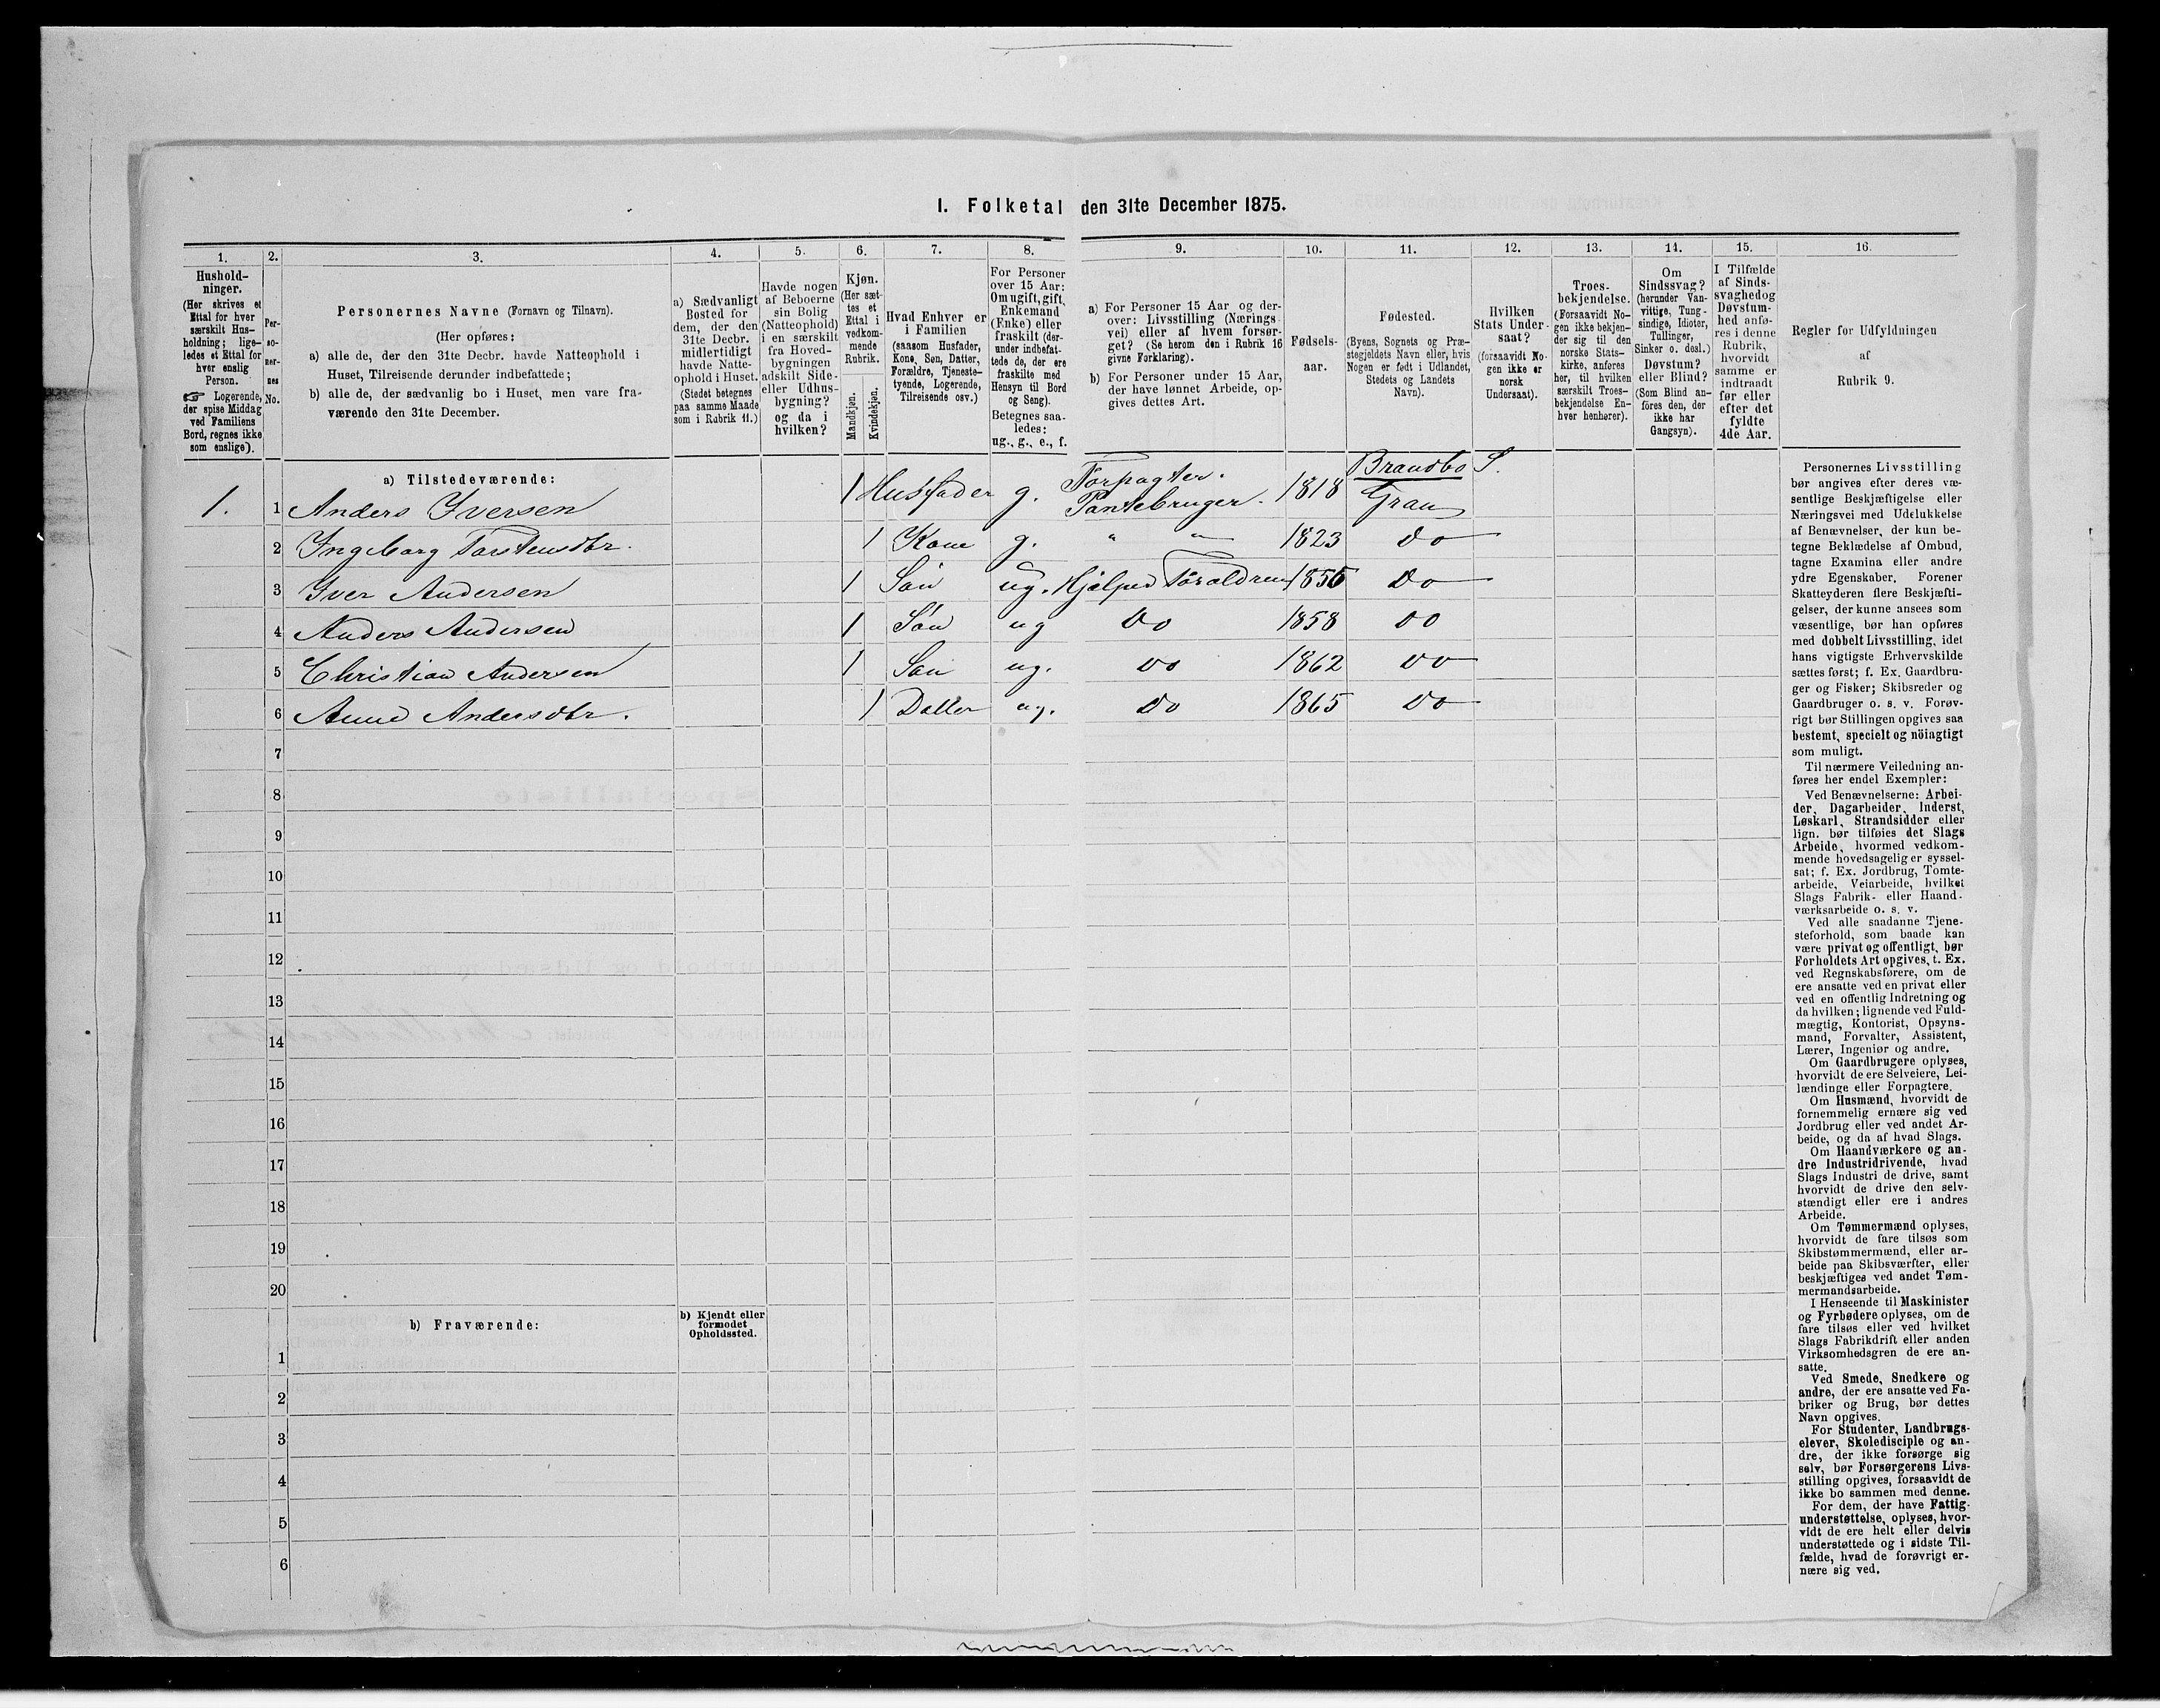 I. Folketal den 31te December 1875.
1. 2. 3. 4. 5. 6. 7. 8. 9. 10. 11. 12. 13. 14. 15. 16.
Hushold-
ninger.
(Her skrives et
Ettal for hver
særskilt Hus-
holdning; lige-
ledes et Ettal for
hver enslig
Person.
☞ Logerende,
der spise Middag
ved Familiens
Bord, regnes ikke
som enslige).
Per-
so-
ner-
nes
No.
Personernes Navne (Fornavn og Tilnavn).
(Her opføres:
a) alle de, der den 31te Decbr. havde Natteophold i
Huset, Tilreisende derunder indbefattede;
b) alle de, der sædvanlig bo i Huset, men vare fra-
værende den 31te December.
a) Sædvanligt
Bosted for
dem, der den
31te Decbr.
midlertidigt
havde Natte-
ophold i Huset.
(Stedet betegnes
paa samme Maade
som i Rubrik 11.)
Havde nogen
af Beboerne
sin Bolig
(Natteophold)
i en særskilt
fra Hoved-
bygningen
adskilt Side-
eller Udhus-
bygning?
og da i
hvilken?
Kjøn.
(Her sæt-
tes et
Ettal i
vedkom-
mende
Rubrik.
Mandkjøn.
Kvindekjøn.
Hvad Enhver er
i Familien
(saasom Husfader,
Kone, Søn, Datter,
Forældre, Tjeneste-
tyende, Logerende,
Tilreisende osv.)
For Personer
over 15 Aar:
Om ugift, gift,
Enkemand
(Enke) eller
fraskilt (der-
under indbefat-
tede de, der ere
fraskilte med
Hensyn til Bord
og Seng).
Betegnes saa-
ledes:
ug., g., e., f.
a) For Personer 15 Aar og der-
over: Livsstilling (Nærings-
vei) eller af hvem forsør-
get? (Se herom den i Rubrik 16
givne Forklaring).
b) For Personer under 15 Aar,
der have lønnet Arbeide, op-
gives dettes Art.
Fødsels-
aar.
Fødested.
(Byens, Sognets og Præ-
stegjeldets Navn eller, hvis
Nogen er født i Udlandet,
Stedets og Landets
Navn).
Hvilken
Stats Under-
saat?
(forsaavidt No-
gen ikke er
norsk
Undersaat).
Troes-
bekjendelse.
(Forsaavidt No-
gen ikke bekjen-
der sig til den
norske Stats-
kirke, anføres
her, til hvilken
særskilt Troes-
bekjendelse En-
hver henhører).
Om
Sindssvag?
(herunder Van-
vittige, Tung-
sindige, Idioter,
Tullinger,
Sinker o. desl.)
Døvstum?
eller Blind?
(Som Blind an-
føres den, der
ikke har
Gangsyn).
I Tilfælde
af Sinds-
svaghed og
Døvstum-
hed anfø-
res i denne
Rubrik,
hvorvidt
samme er
indtraadt
før eller
efter det
fyldte
4de Aar.
Regler for Udfyldningen
af
Rubrik 9.
a) Tilstedeværende:
1. 1 Anders Iversen 1 Husfader g. Forpagter. Pantebruger. 1818 Brandbo S. Gran
2 Ingeborg Torstensdtr. 1 Kone g. " " 1823 Do
3 Iver Andersen 1 Søn ug. Hjelper Forældrene 1856 Do
4 Anders Andersen 1 Søn ug Do 1858 Do
5 Christian Andersen 1 Søn ug. Do 1862 Do
6 Anne Andersdtr. 1 Datter ug. Do 1865 Do
7
8
9
10
11
12
13
14
15
16
17
18
19
20
b) Fraværende:
b) Kjendt eller
formodet
Opholdssted.
1
2
3
4
5
6
Personernes Livsstilling
bør angives efter deres væ-
sentlige Beskjæftigelse eller
Næringsvei med Udelukkelse
af Benævnelser, der kun be-
tegne Beklædelse af Ombud,
tagne Examina eller andre
ydre Egenskaber. Forener
Skatteyderen flere Beskjæfti-
gelser, der kunne ansees som
væsentlige, bør han opføres
med dobbelt Livsstilling, idet
hans vigtigste Erhvervskilde
sættes først; f. Ex. Gaardbru-
ger og Fisker; Skibsreder og
Gaardbruger o. s. v. Forøv-
rigt bør Stillingen opgives saa
bestemt, specielt og nöiagtigt
som muligt.
Til nærmere Veiledning an-
føres her endel Exempler:
Ved Benævnelserne: Arbei-
der, Dagarbeider, Inderst,
Løskarl, Strandsidder eller
lign. bør tilføies det Slags
Arbeide, hvormed vedkom-
mende hovedsagelig er syssel-
sat; f. Ex. Jordbrug, Tomte-
arbeide, Veiarbeide, hvilket
Slags Fabrik- eller Haand-
værksarbeide o. s. v.
Ved alle saadanne Tjene-
steforhold, som baade kan
være privat og offentligt, bør
Forholdets Art opgives, t. Ex.
ved Regnskabsførere, om de
ere ansatte ved en privat eller
ved en offentlig Indretning og
da hvilken; lignende ved Fuld-
mægtig, Kontorist, Opsyns-
mand, Forvalter, Assistent,
Lærer, Ingeniør og andre.
Om Gaardbrugere oplyses,
hvorvidt de ere Selveiere, Lei-
lændinge eller Forpagtere.
Om Husmænd, hvorvidt de
fornemmelig ernære sig ved
Jordbrug eller ved andet Ar-
beide, og da af hvad Slags.
Om Haandværkere og an-
dre Industridrivende, hvad
Slags Industri de drive, samt
hvorvidt de drive den selv-
stændigt eller ere i andres
Arbeide.
Om Tømmermænd oplyses,
hvorvidt de fare tilsøs som
Skibstømmermænd, eller ar-
beide paa Skibsværfter, eller
beskjæftiges ved andet Tøm-
mermandsarbeide.
I Henseende til Maskinister
og Fyrbødere oplyses, om de
fare tilsøs eller ved hvilket
Slags Fabrikdrift eller anden
Virksomhedsgren de ere an-
satte.
Ved Smede, Snedkere og
andre, der ere ansatte ved Fa-
briker og Brug, bør dettes
Navn opgives.
For Studenter, Landbrugs-
elever, Skoledisciple og an-
dre, der ikke forsørge sig
selv, bør Forsørgerens Livs-
stilling opgives, forsaavidt de
ikke bo sammen med denne.
For dem, der have Fattig-
understøttelse, oplyses, hvor-
vidt de ere helt eller delvis
understøttede og i sidste Til-
fælde, hvad de forøvrigt er-
nære sig ved.